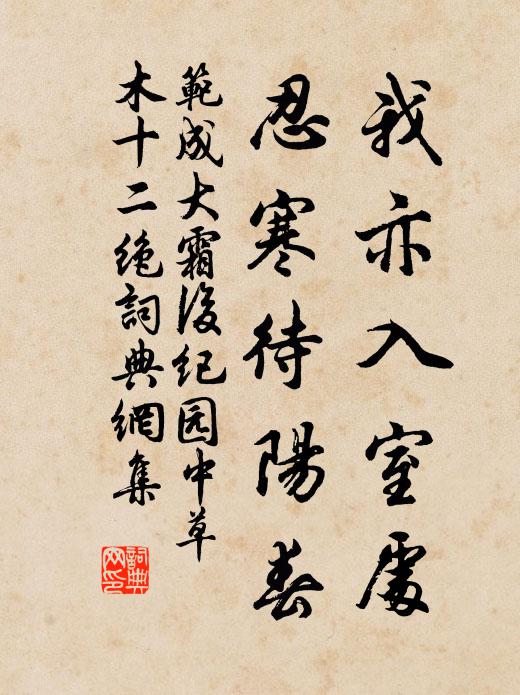 我亦入室處
忍寒待陽春
範成大霜後纪园中草
木十二絶詞典網集
詞典
网印